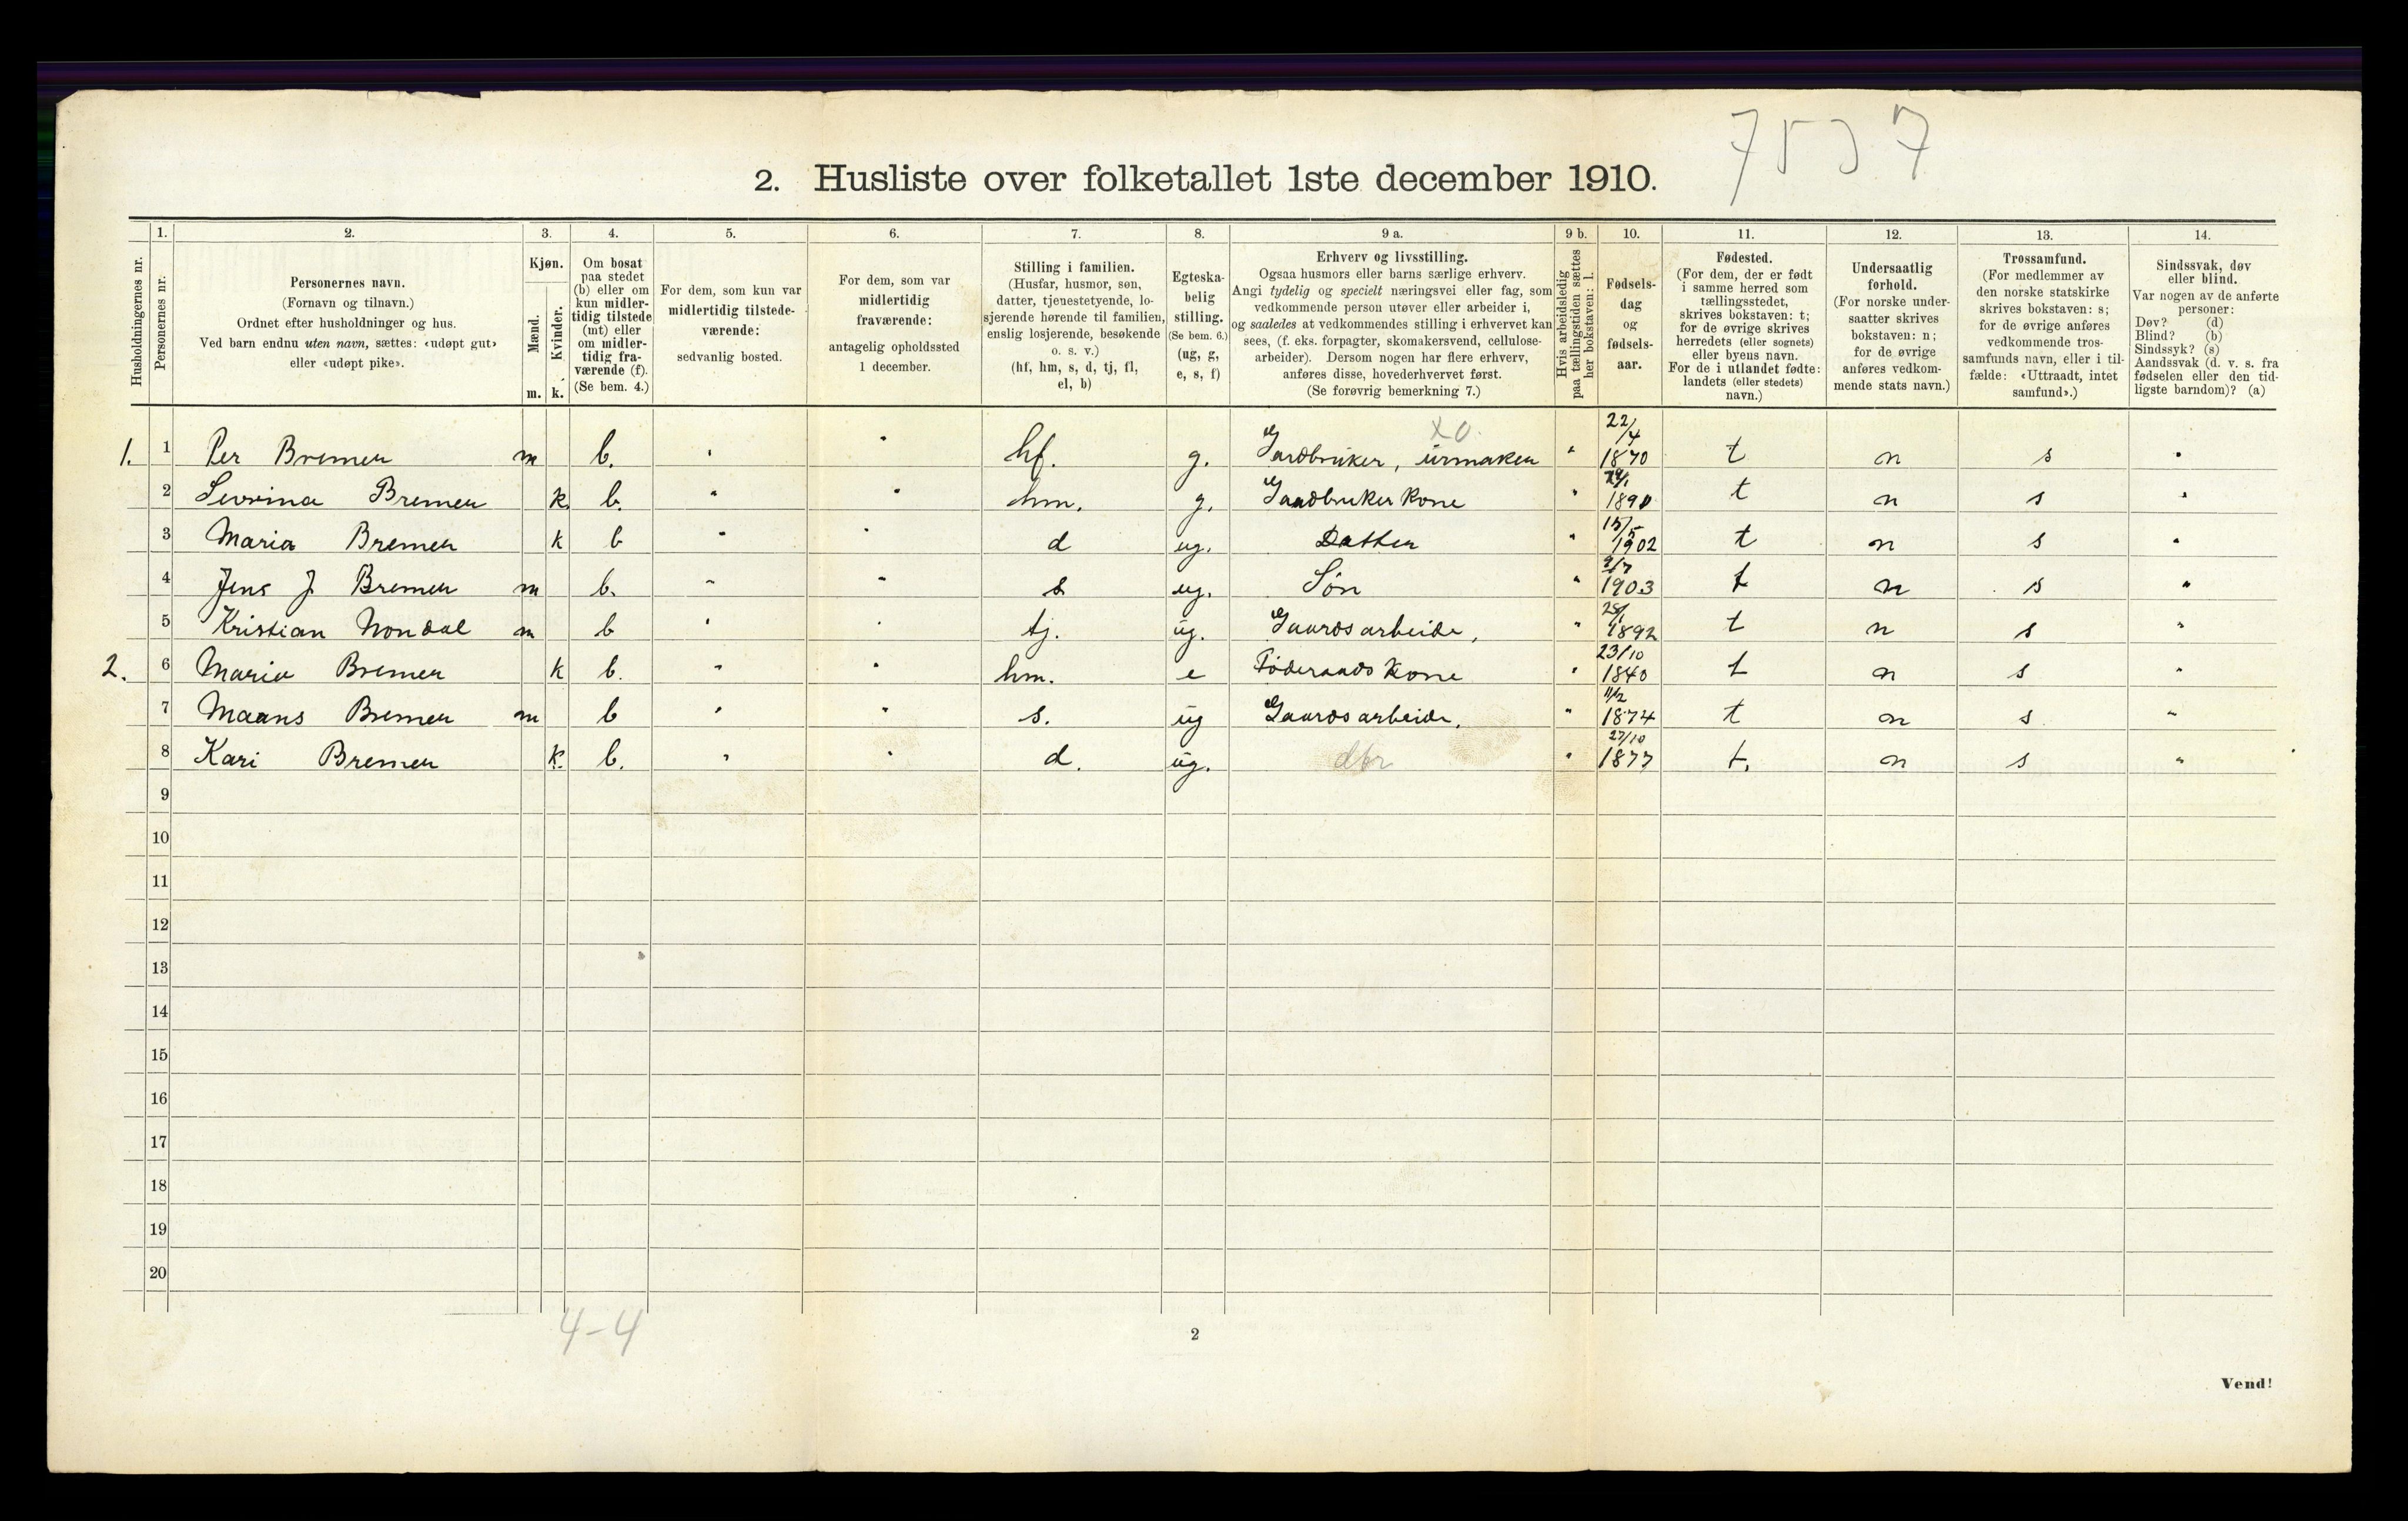 7537
2. Husliste over folketallet 1ste december 1910.
Husholdningernes nr.
1. Personernes nr.
2. Personernes navn.
(Fornavn og tilnavn.)
Ordnet efter husholdninger og hus.
Ved barn endnu uten navn, sættes: «udøpt gut»
eller «udøpt pike».
3. Kjøn.
Mænd. m.
Kvinder. k.
4. Om bosat
paa stedet
(b) eller om
kun midler-
tidig tilstede
(mt) eller
om midler-
tidig fra-
værende (f).
(Se bem. 4.)
5. For dem, som kun var
midlertidig tilstede-
værende:
sedvanlig bosted.
6. For dem, som var
midlertidig
fraværende:
antagelig opholdssted
1 december.
7. Stilling i familien.
(Husfar, husmor, søn,
datter, tjenestetyende, lo-
sjerende hørende til familien,
enslig losjerende, besøkende
o. s. v.)
(hf, hm, s, d, tj, fl,
el, b)
8. Egteska-
belig
stilling.
(Se bem. 6.)
(ug, g,
e, s, f)
9 a. Erhverv og livsstilling.
Ogsaa husmors eller barns særlige erhverv.
Angi tydelig og specielt næringsvei eller fag, som
vedkommende person utøver eller arbeider i,
og saaledes at vedkommendes stilling i erhvervet kan
sees, (f. eks. forpagter, skomakersvend, cellulose-
arbeider). Dersom nogen har flere erhverv,
anføres disse, hovederhvervet først.
(Se forøvrig bemerkning 7.)
9 b. Hvis arbeidsledig
paa tællingstiden sættes
her bokstaven: l.
10. Fødsels-
dag
og
fødsels-
aar.
11. Fødested.
(For dem, der er født
i samme herred som
tællingsstedet,
skrives bokstaven: t;
for de øvrige skrives
herredets (eller sognets)
eller byens navn.
For de i utlandet fødte:
landets (eller stedets)
navn.)
12. Undersaatlig
forhold.
(For norske under-
saatter skrives
bokstaven: n;
for de øvrige
anføres vedkom-
mende stats navn.)
13. Trossamfund.
(For medlemmer av
den norske statskirke
skrives bokstaven: s;
for de øvrige anføres
vedkommende tros-
samfunds navn, eller i til-
fælde: «Uttraadt, intet
samfund».)
14. Sindssvak, døv
eller blind.
Var nogen av de anførte
personer:
Døv? (d)
Blind? (b)
Sindssyk? (s)
Aandssvak (d. v. s. fra
fødselen eller den tid-
ligste barndom)? (a)
1. 1 Per Bremer m b. " " hf. g. Gardbruker, urmaker " 22/4 1870 t n s "
2 Bremer k. b. " " hm. g. Gaardbruker kone " 1890 t n s "
3 Maria Bremer k b " " d ug. Datter " 15/5 1902 t n s "
4 Jens J Bremer m b. " " s ug. Søn " 9/7 1903 t n s "
5 Kristian Nordal m b " " tj. ug. Gaardsarbeide, " 28/1 1892 t n s "
2. 6 Maria Bremer k b. " " hm. e Føderaads kone " 23/10 1840 t n s "
7 Maans Bremer m b " " s. ug Gaardsarbeide. " 11/2 1874 t n s "
8 Kari Bremer k. b. " " d. ug. dbr " 27/10 1877 t. n s "
9
10
11
12
13
14
15
16
17
18
19
20
4-4
2
Vend!